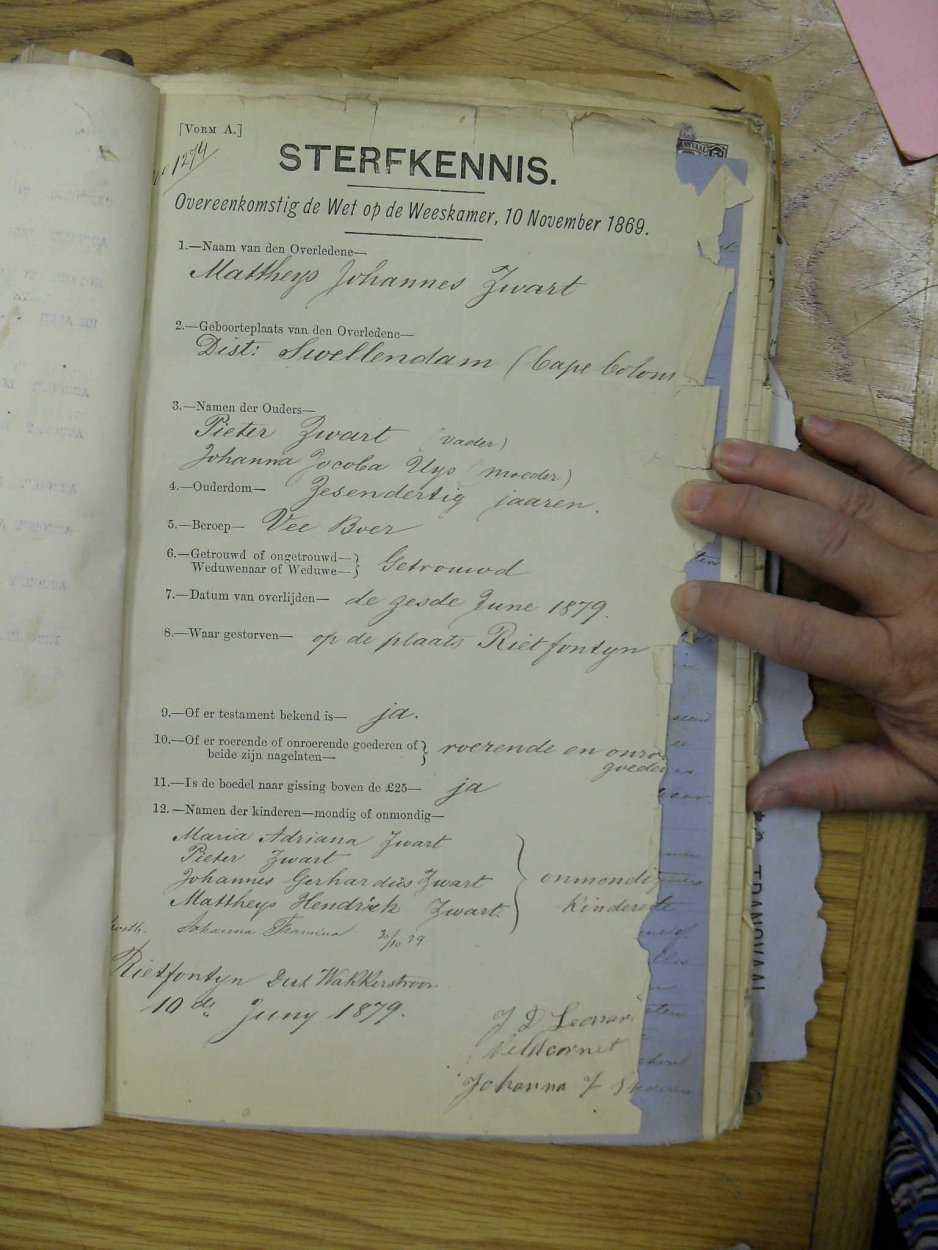 [VORM A.]
1274
STERFKENNIS.
Overeenkomstig de Wet op de Weeskamer, 10 November 1869.
1.—Naam van den Overledene—
Mattheys Johannes Zwart
2.—Geboorteplaats van den Overledene—
Dist: Swellendam (Cape Colony
3.—Namen der Ouders—
Pieter Zwart (vader)
Johanna Jocoba Uys (moeder)
4.—Ouderdom— Zesendertig jaaren.
5.—Beroep— Vee Boer
6.—Getrouwd of ongetrouwd— } Getrouwd
Weduwenaar of Weduwe—
7.—Datum van overlijden— de zesde June 1879.
8.—Waar gestorven— op de plaats Rietfontyn
9.—Of er testament bekend is— ja.
10.—Of er roerende of onroerende goederen of } roerende en onro
beide zijn nagelaten— goeder
11.—Is de boedel naar gissing boven de £25— ja
12.—Namen der kinderen—mondig of onmondig—
Maria Adriana Zwart
Pieter Zwart
Johannes Gerhardus Zwart } onmondi
Mattheys Hendrick Zwart. kindere
Johanna 30/10 79
Rietfontyn Dist Wakkerstroom
10de Juny 1879.
J D
Veldcornet
Johanna J
TRANSVAAL